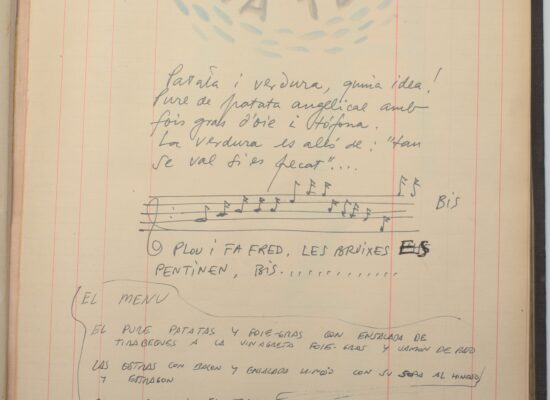 Patata i verdura, quina idea!
Puré de patata angelical amb
fois gras d'oie i tófona.
La verdura es allò de: "tan
se val si es pecat"...
BIS
PLOU i FA FRED, LES BRUIXES ES
PENTINEN, BIS.............
EL MENU
EL PURE PATATAS Y FOIE-GRAS CON ENSALADA DE
TIRABEQUES A LA VINAGRETA FOIE-GRAS Y JAMON DE PATO
LAS OSTRAS CON BACON Y ENSALADA CON SU SOPA AL HINOJO
Y ESTRAGON